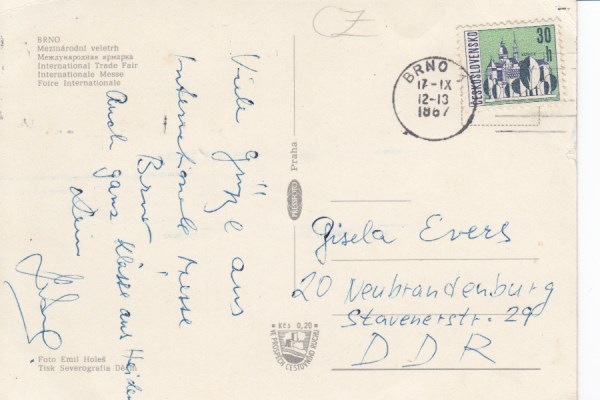 BRNO
Mezinárodní veletrh
Международная ярмарка
International Trade Fair
Internationale Messe
Foire Internationale
Viele Grüße aus
Internationale Messe
Brno
Auch ganz Klasse aus
Dein
Foto Emil Holeš
Tisk Severografia
Praha
PRESSFOTO
Kčs 0,20
VE PROSPĚCH CESTOVNÍHO RUCHU
BRNO
17-IX
12-13
1867
ČESKOSLOVENSKO
30
h
Gisela Evers
20 Neubrandenburg
Stavenerstr. 29
DDR